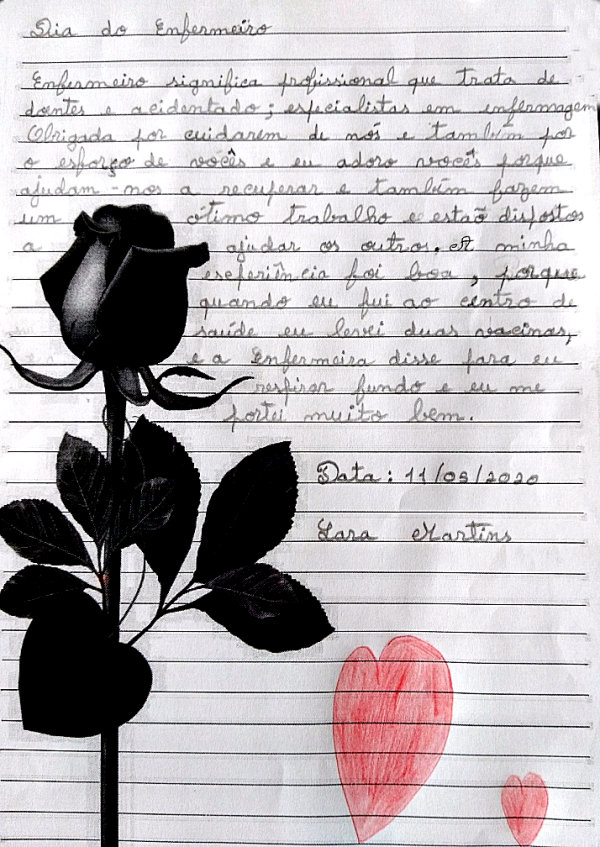 Dia do Enfermeiro
Enfermeiro significa profissional que trata de
doentes e acidentado; especialistas em enfermagem
Obrigada por cuidarem de nós e também por
o esforço de vocês e eu adoro vocês porque
ajudam-nos a recuperar e também fazem
um ótimo trabalho e estaõ dispostos
a ajudar os outros. A minha
eseperiência foi boa, porque
quando eu fui ao centro de
saúde eu levei duas vacinas,
e a Enfermeira disse para eu
respirar fundo e eu me
portei muito bem.
Data: 11/05/2020
Lara Martins